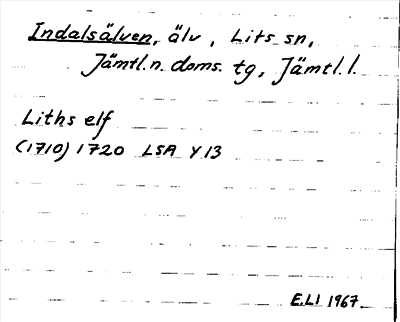 Indalsälven, älv, Lits sn,
Jämtl. n. doms. tg, Jämtl. l.
Liths elf
(1710) 1720 LSA Y 13
E.LI 1967